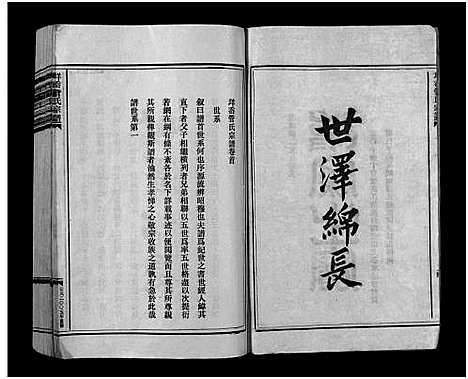 世澤綿長
管氏宗譜卷首
世系
敘曰譜首世系何也序源流辨昭穆也夫譜爲紀世之書世經人緯其
直下者父子相繼橫列者兄弟相聯以五世爲率五世各提
若網在綱有條不紊各於名下詳載事迹以便閱覽而且尊其所尊親
其所親俾觀斯譜者油然生孝悌之心敬宗收族之道孰有急於此哉
譜世系第一